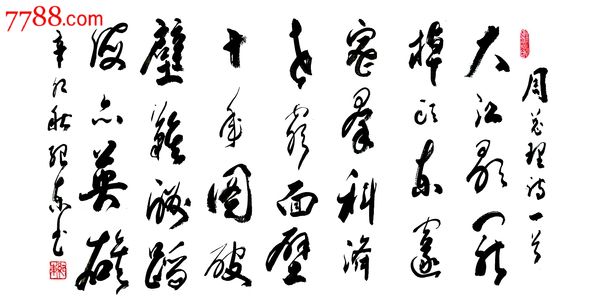 7788.com
周总理诗一首
大江歌罷
掉头东邃
密羣科濟
世窮面壁
十年圖破
壁難酬蹈
海亦英雄
辛秋东书